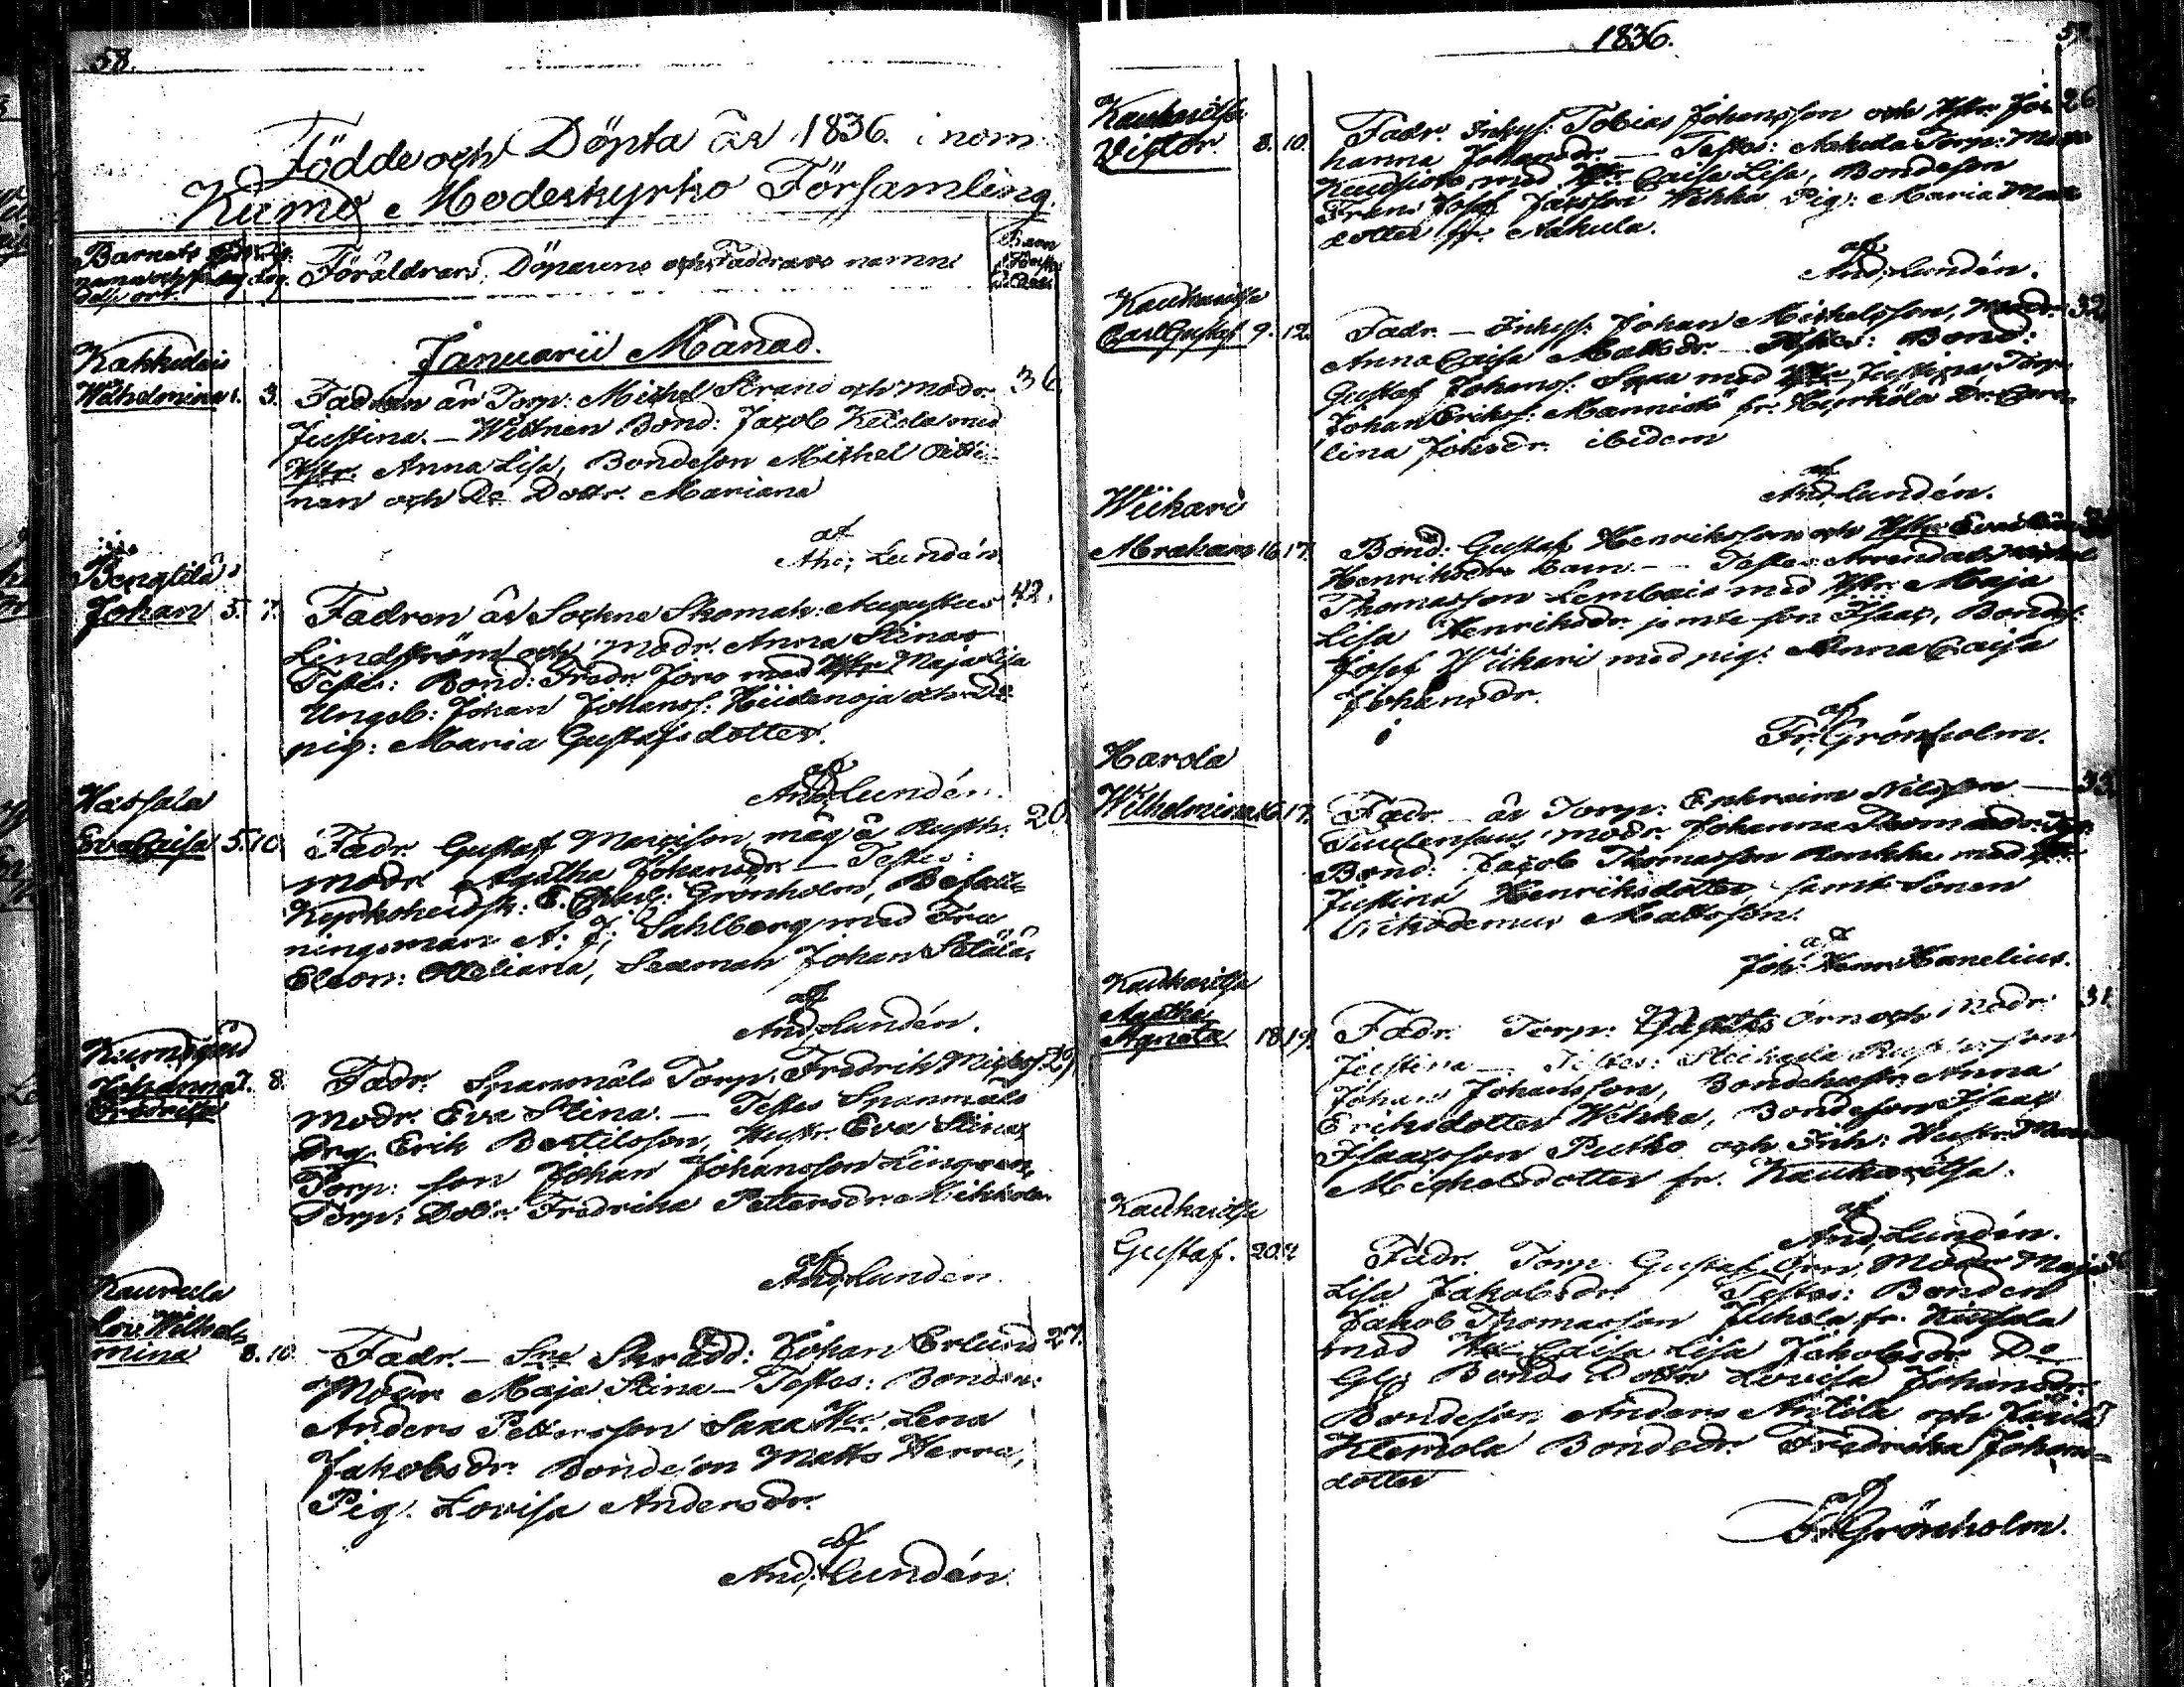 58.
Födde och Döpta år 1836. inom
Kumo Moderkyrko Församling.
Barnets
namn och fö
delse ort.
Föräldrars, Döparens och Faddrars namn
Barn
Januarii Månad.
Kakkulais
Wilhelmina 1. 3. Fadren är Torp: Michel Strand och modr. 36.
Justina. — Wittnen Bond: Jacob Keiola med
Hstr. Anna Lisa, Bondeson Michel
nen och Do Dottr. Mariana
af
And; Lundén
Benqtilä
Johan 5. 7. Fadren är Sockne Skomak: Augustus 42.
Lindström och Modr. Anna Stina
Testes: Bond: Fredr. Joro med Hstr Maja Lisa
Ungeb: Johan Johanss: Hiidenoja och
pig: Maria Gustafsdotter.
af
And; Lundén.
Hassala
Eva Caisa 5. 10. Fadr. Gustaf Mattson, måg å Rusth. 20.
Modr. Agatha Johansdr. — Testes:
Kyrkoherdsk: E. Grönholm, Befall
ningsman A: J; Sahlberg med Fru
Eleon: Otteliana, Sexman Johan Sälälä.
af
And; Lundén.
Johanna 7. 8. Fadr. Spanmåls Torp. Fredrik Michelss. 29.
Fredrika
Modr. Eva Stina. — Testes Spanmåls
Drg. Erik Bertilsson, Hustr. Eva Stina
Torp: son Johan Johansson Lingren,
Torp: Dott: Fredrika Pettersdr. Mikkola.
af
And; Lundén.
Kaurula
Lov. Wilhel
mina 8. 10. Fadr. — Sne Skrädd: Johan Erlund 27.
Modr. Maja Stina — Testes: Bonden:
Anders Pettersson Saxa Hu. Lena
Jakobsdr. Bondeson Matts Herra,
Pig. Lovisa Andersdr.
af
And; Lundén.
1836.
Kaukaritsa
Victor. 8. 10. Fadr. Inhys: Tobias Johansson och Hstr. Jo 26
hanna Johansdr. — Testes: Nakula Torp:
med Hstr. Caisa Lisa, Bondeson
Frans Josef Jacsson Wehka Pig: Maria
dotter fr. Nakula.
af
And; Lundén.
Kaukaritsa
Carl Gustaf 9. 12. Fadr. — Inhys: Johan Michelsson, Modr. 32
Anna Caisa Mattsdr. — Testes: Bond:
Gustaf Johanss: Saxa med Hstr Justina Torp:
Johan Erikss: Mannistö fr. Kyrkölä Dr. Caro
lina Johsdr. ibidem
af
And; Lundén.
Wiikari
Abraham 16. 17. Bond: Gustaf Henriksson och Hstr Eva
Henriksdrs barn. — Testes Arrendator
Thomasson Lembois med Hstr. Maja
Lisa Henriksdr. jemte son Isaac, Bondes:
Josef Wiikari med pig: Anna Caisa
Johansdr.
af
Fr; Grönholm.
Harola
Wilhelmina 16. 17. Fadr. — är Torp: Ephraim Nilsson — 33.
Modr. Johanna Thomasdr.
Bond: Jacob Thomasson Ronkka med Hstr
Justina Henriksdotter, samt Sonen
Nikodemus Mattsson.
af
Joh: Henr. Hanelius.
Kaukaritsa
Agatha
Agneta 18. 19. Fadr. Torp: Örn och Modr. 31
Justina — Testes: Rusth:son
Johan Johansson, Bondehustr. Anna
Eriksdotter Wehka, Bondeson Isaac
Isaacsson Putko och Inh: Hustr:
Michelsdotter fr. Kaukaritsa.
af
And; Lundén.
Kaukaritsa
Gustaf. 20. Fadr. Torp: Gustaf Örn, Modr Maja
Lisa Jakobsdr. Testes: Bonden
Jakob Thomasson Juhola fr.
med Hu Caisa Lisa Jakobsdr Do
Gl: Bonds Dottr Lovisa Johansdr.
Bondeson Anders Antila och
Klemola Bondedr. Fredrika Johans-
dotter
af
Fr. Grönholm.